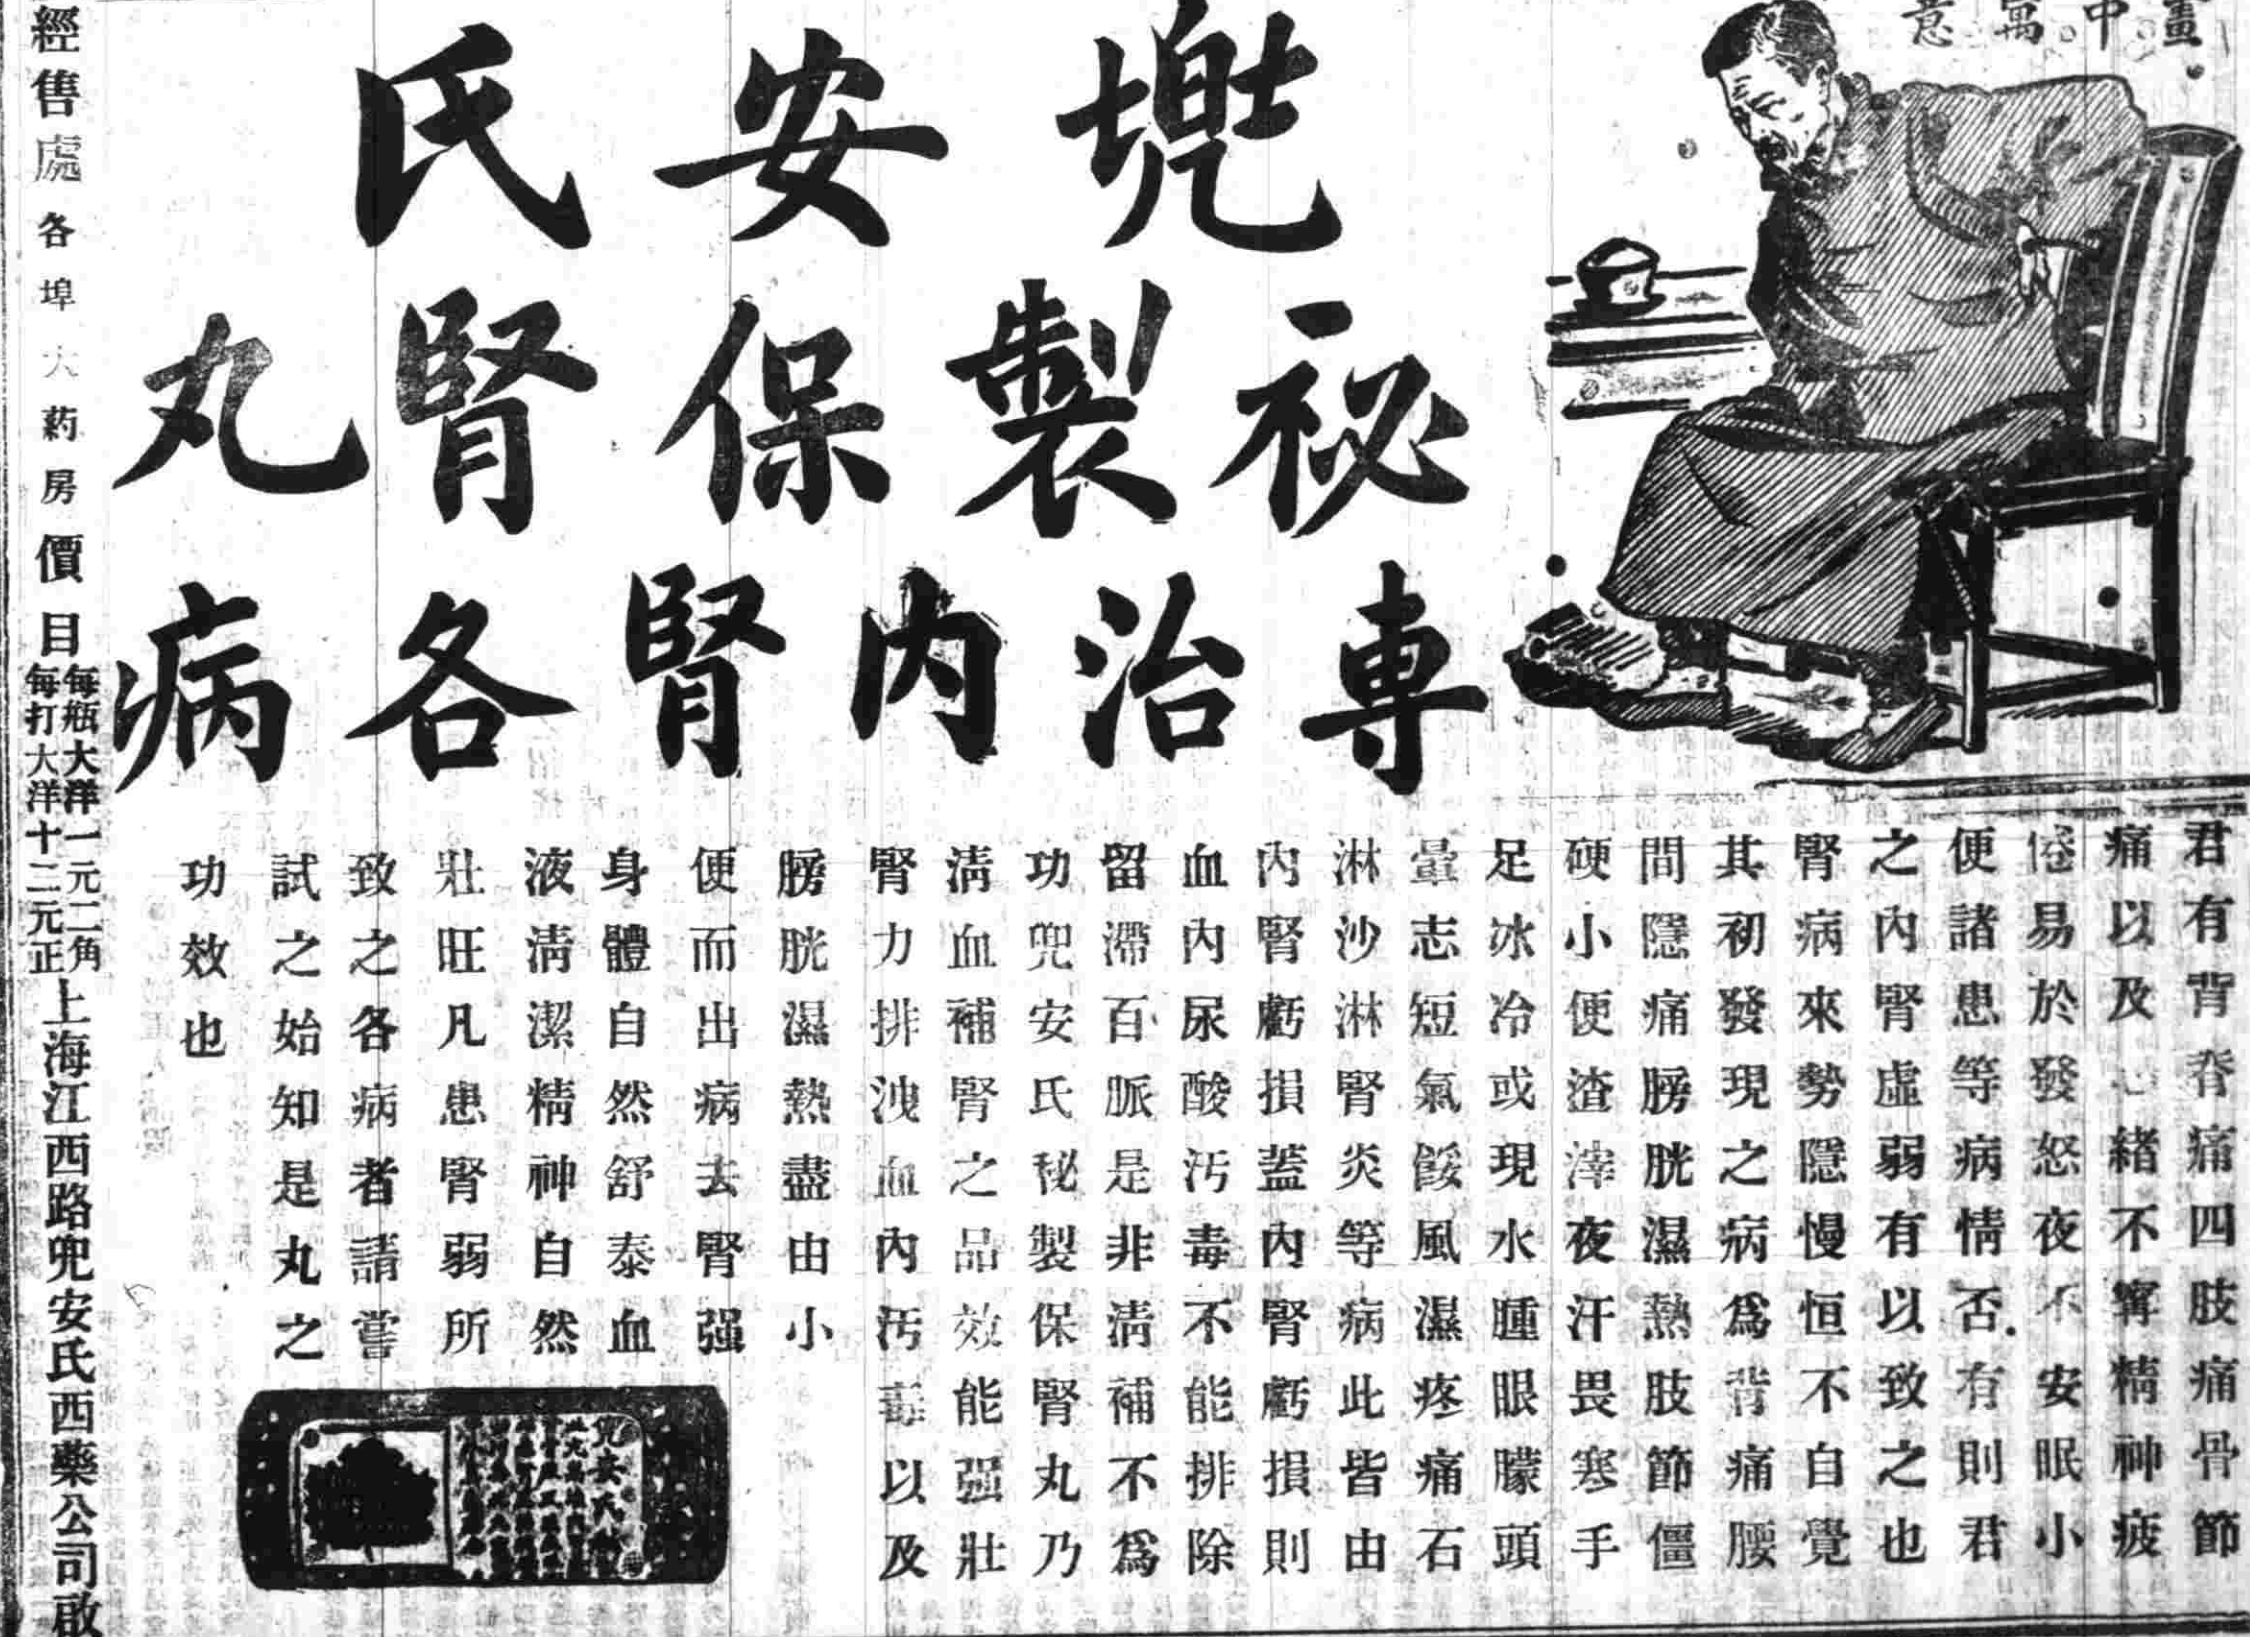 畫中寓意
兠安氏
祕製保腎丸
專治內腎各病
君有背脊痛四肢痛骨節
痛以及心緒不寧精神疲
倦易於發怒夜不安眠小
便諸患等病情否有則君
之內腎虛弱有以致之也
腎病來勢隱慢恒不自覺
其初發現之病爲背痛腰
間隱痛膀胱濕熱肢節僵
硬小便渣滓夜汗畏寒手
足冰冷或現水腫眼朦頭
暈志短氣餒風濕疼痛石
淋沙淋腎炎等病此皆由
內腎虧損蓋內腎虧損則
血內尿酸汚毒不能排除
留滯百脈是非淸補不爲
功兜安氏秘製保腎丸乃
淸血補腎之品效能强壯
腎力排洩血內汚毒以及
膀胱濕熱盡由小
便而出病去腎强
身體自然舒泰血
液淸潔精神自然
壯旺凡患腎弱所
致之各病者請嘗
試之始知是丸之
功效也
經售處各埠大葯房價目
每瓶大洋一元二角
每打大洋十二元正
上海江西路兜安氏西藥公司啟